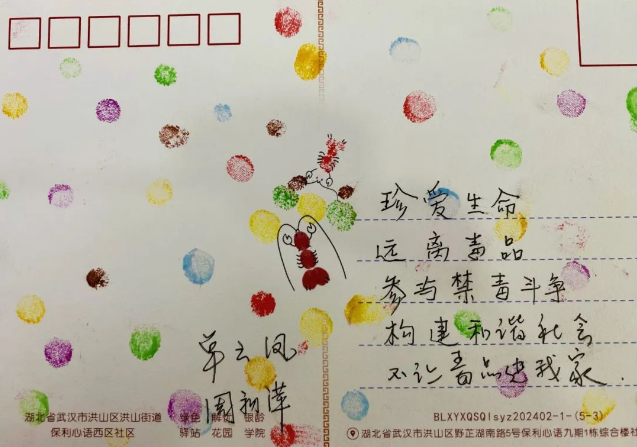 珍爱生命
远离毒品
参与禁毒斗争
构建和谐社会
不让毒品进我家
单云凤
湖北省武汉市洪山区洪山街道
保利心语西区社区
绿色 解忧 银龄
驿站 花园 学院
BLXYXQSQ1syz202402-1-(5-3)
湖北省武汉市洪山区野芷湖南路5号保利心语九期1栋综合楼